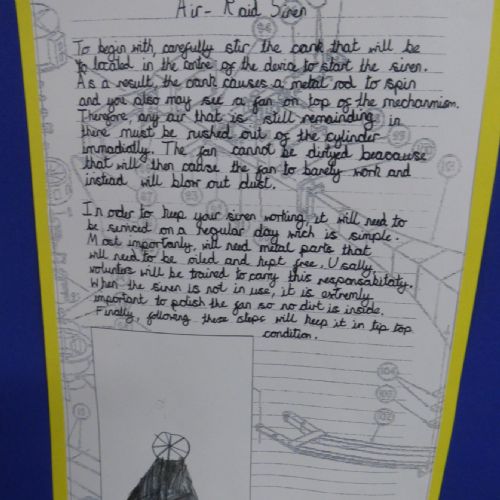 Air-Raid Siren
To begin with, carefully stir the cank that will be
to located in the centre of the device to start the siren.
As a result, the crank causes a metal rod to spin
and you also may see a fan on top of the mechanmism.
Therefore, any air that is still remainding in
there must be rushed out of the cylinder
immadiatly. The fan cannot be dirtyed beacause
that will then cause the fan to barely work and
instead will blow out dust.
In order to keep your siren working, it will need to
be serviced on a regular day wich is simple.
Most importanly, will need metal parts that
will need to be oiled and kept free. Usally,
volunters will be trained to carry this responsabitaty.
When the siren is not in use, it is extremly
important to polish the fan so no dirt is inside.
Finally, following these steps will keep it in tip top
condition.
93
95
101
104
103
102